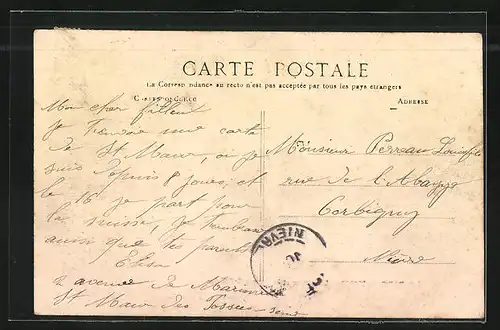 CARTE POSTALE
La Correspondance au recto n'est pas acceptée par tous les pays étrangers
CORRESPONDANCE
ADRESSE
Mon cher filleul
Je t'envoie une carte
de St Maur, ou je
suis depuis 8 jours, et
le 16 je part pour
la suisse, je t'embrasse
aussi que tes parents
Elisa
2 avenue de
St Maur des Fossés Seine
Monsieur Perreau Louis fils
rue de l'Abbaye
Corbigny
Nièvre
NIEVRE